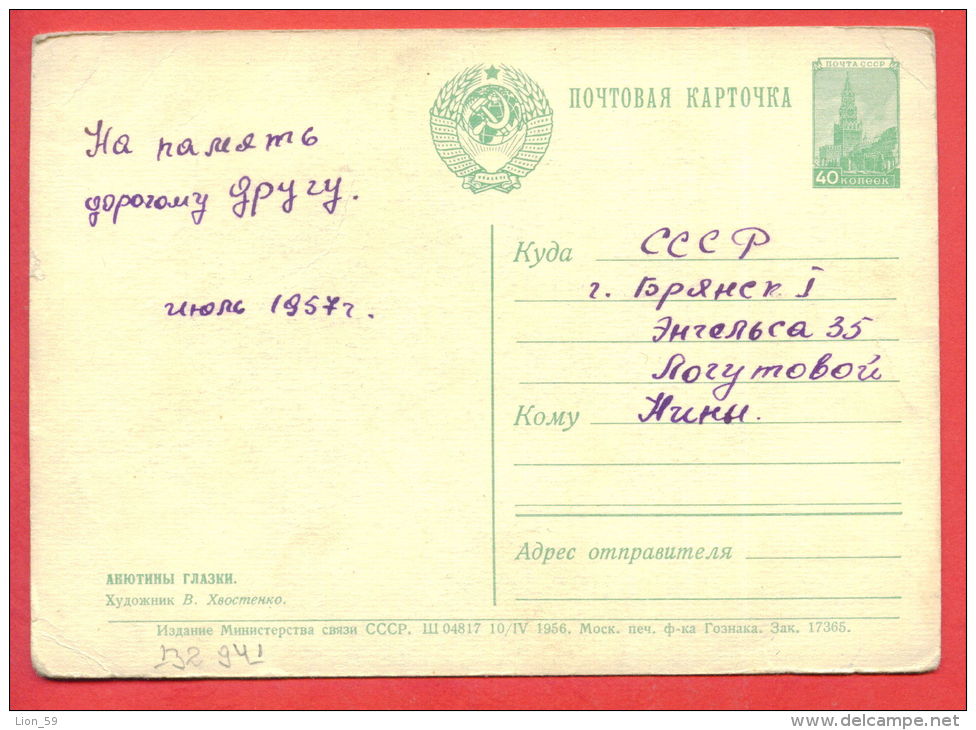 ПОЧТОВАЯ КАРТОЧКА
ПОЧТА СССР
40 копеек
На память
дорогому другу.
июль 1957 г.
Куда СССР
г. Брянск I
Энгельса 35
Логутовой
Кому Нины.
Адрес отправителя
АНЮТИНЫ ГЛАЗКИ.
Художник В. Хвостенко.
Издание Министерства связи СССР. Ш 04817 10/IV 1956. Моск. печ. ф-ка Гознака. Зак. 17365.
Lion_59
www.delcampe.net